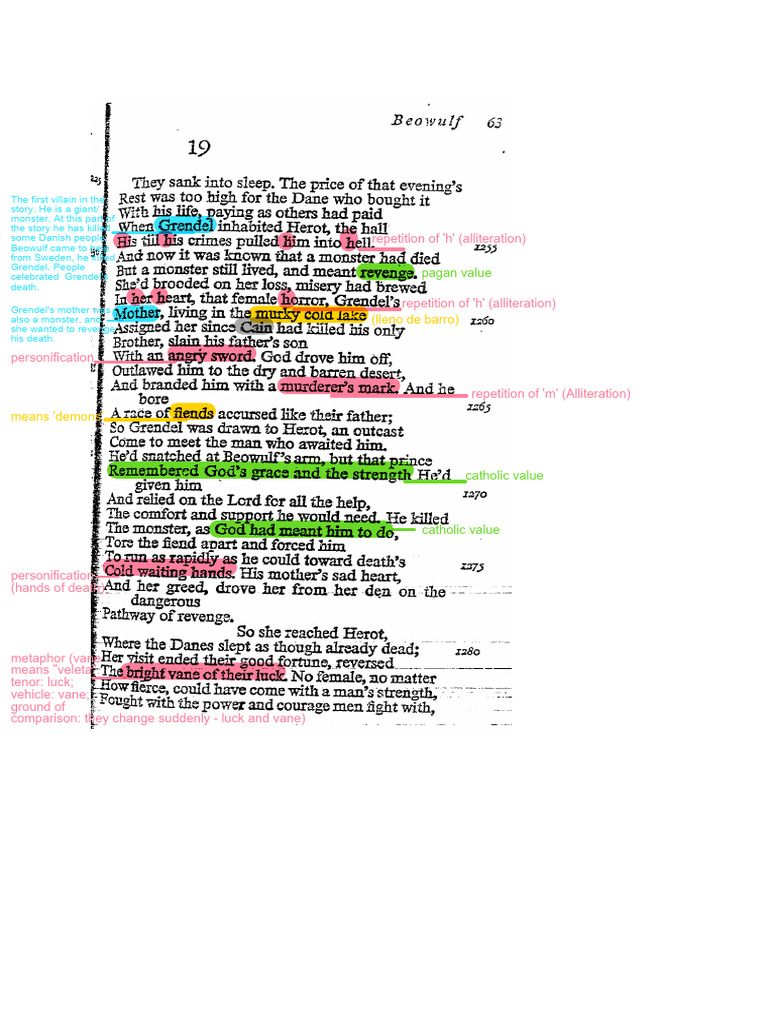 Beowulf 63
19
They sank into sleep. The price of that evening's
Rest was too high for the Dane who bought it
With his life, paying as others had paid
When Grendel inhabited Herot, the hall
His till his crimes pulled him into hell.
1255
And now it was known that a monster had died
But a monster still lived, and meant revenge.
She'd brooded on her loss, misery had brewed
In her heart, that female horror, Grendel's
Mother, living in the murky cold lake
1260
Assigned her since Cain had killed his only
Brother, slain his father's son
With an angry sword. God drove him off,
Outlawed him to the dry and barren desert,
And branded him with a murderer's mark. And he
bore
1265
A race of fiends accursed like their father;
So Grendel was drawn to Herot, an outcast
Come to meet the man who awaited him.
He'd snatched at Beowulf's arm, but that prince
Remembered God's grace and the strength He'd
given him
1270
And relied on the Lord for all the help,
The comfort and support he would need. He killed
The monster, as God had meant him to do,
Tore the fiend apart and forced him
To run as rapidly as he could toward death's
1275
Cold waiting hands. His mother's sad heart,
And her greed, drove her from her den on the
dangerous
Pathway of revenge.
So she reached Herot,
Where the Danes slept as though already dead;
1280
Her visit ended their good fortune, reversed
The bright vane of their luck. No female, no matter
How fierce, could have come with a man's strength,
Fought with the power and courage men fight with,
The first villain in the
story. He is a giant/
monster. At this part of
the story he has killed
some Danish people.
Beowulf came to help
from Sweden, he killed
Grendel. People
celebrated Grendel's
death.
Grendel's mother was
also a monster, and
she wanted to revenge
his death.
personification
means 'demons'
personification
(hands of death)
metaphor (vane
means "veleta"
tenor: luck;
vehicle: vane;
ground of
comparison: they change suddenly - luck and vane)
repetition of 'h' (alliteration)
pagan value
repetition of 'h' (alliteration)
(lleno de barro)
repetition of 'm' (Alliteration)
catholic value
catholic value